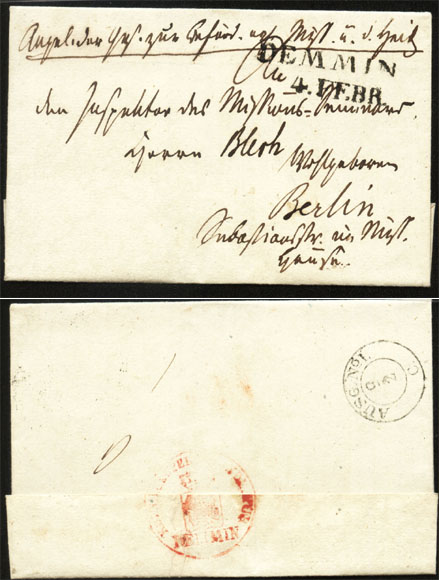 Angel. der Ges. zur Beförd. ev. Miss. u. d. Heid.
DEMMIN
4. FEBR
An
den Inspektor des Missions-Seminars
Herrn Blech
Wohlgeboren
Berlin
Sebastiansstr. im Miss.
Hause.
AUSG. No 1.
DEMMIN